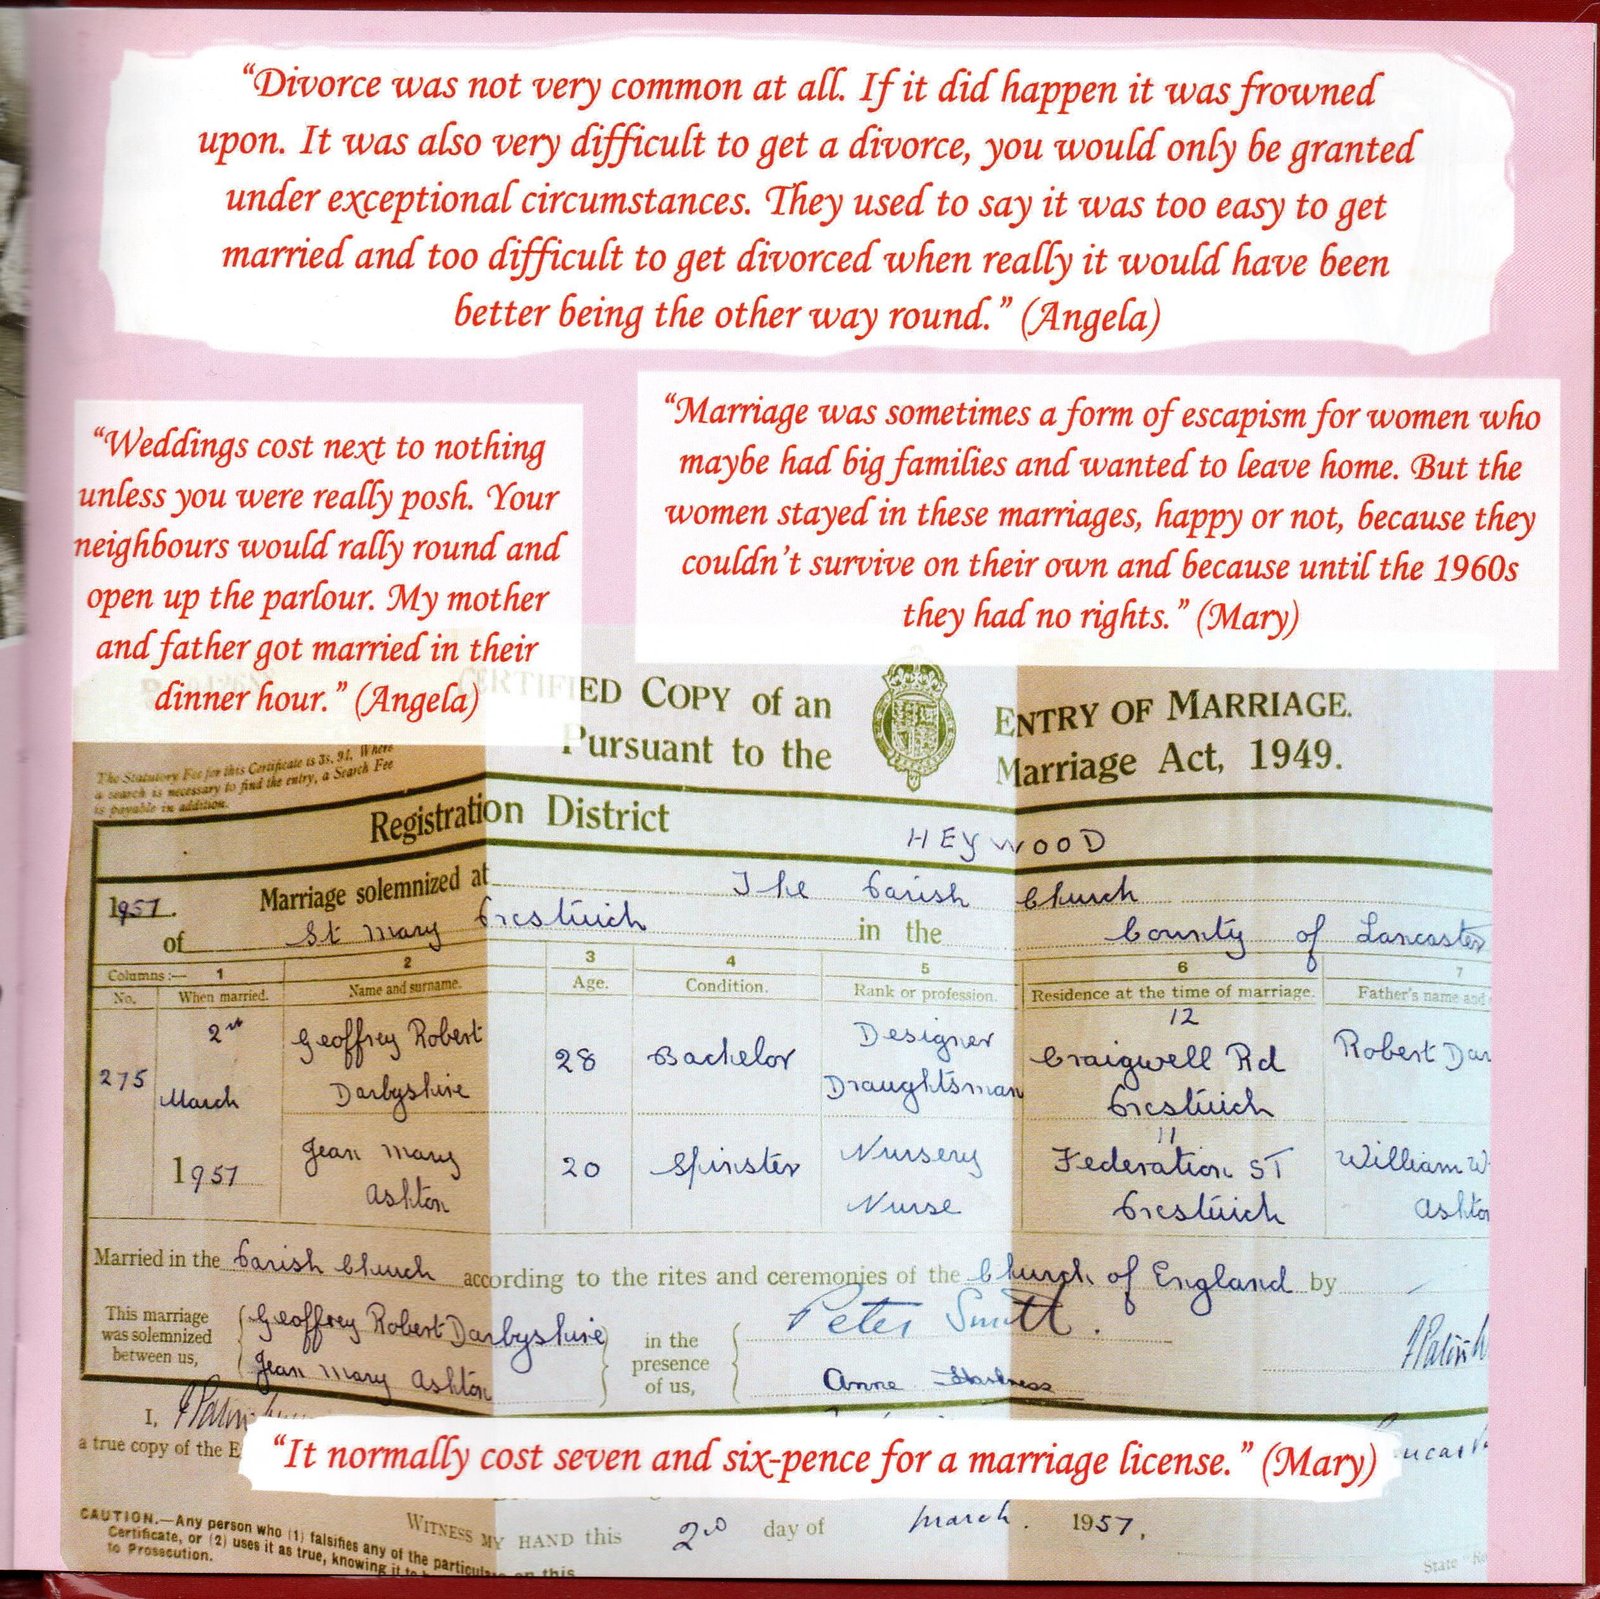 “Divorce was not very common at all. If it did happen it was frowned
upon. It was also very difficult to get a divorce, you would only be granted
under exceptional circumstances. They used to say it was too easy to get
married and too difficult to get divorced when really it would have been
better being the other way round.” (Angela)
“Weddings cost next to nothing
unless you were really posh. Your
neighbours would rally round and
open up the parlour. My mother
and father got married in their
dinner hour.” (Angela)
“Marriage was sometimes a form of escapism for women who
maybe had big families and wanted to leave home. But the
women stayed in these marriages, happy or not, because they
couldn’t survive on their own and because until the 1960s
they had no rights.” (Mary)
CERTIFIED COPY of an ENTRY OF MARRIAGE.
Pursuant to the Marriage Act, 1949.
The Statutory Fee for this Certificate is 3s. 9d. Where
a search is necessary to find the entry, a Search Fee
is payable in addition.
Registration District HEYWOOD
1957. Marriage solemnized at The Parish Church
of St Mary Prestwich in the County of Lancaster
Columns:— 1 2 3 4 5 6 7
No. When married. Name and surname. Age. Condition. Rank or profession. Residence at the time of marriage. Father's name and
275 2nd March 1957 Geoffrey Robert Darbyshire 28 Bachelor Designer Draughtsman 12 Craigwell Rd Prestwich Robert Dar
Jean Mary Ashton 20 Spinster Nursery Nurse 11 Federation ST Prestwich William W Ashto
Married in the Parish Church according to the rites and ceremonies of the Church of England by
This marriage was solemnized between us, Geoffrey Robert Darbyshire in the presence of us, Peter Smith.
Jean Mary Ashton Anne Harkness
I,
a true copy of the E
“It normally cost seven and six-pence for a marriage license.” (Mary)
CAUTION.—Any person who (1) falsifies any of the particulars on this
Certificate, or (2) uses it as true, knowing it to b
to Prosecution.
WITNESS MY HAND this 2nd day of March. 1957.